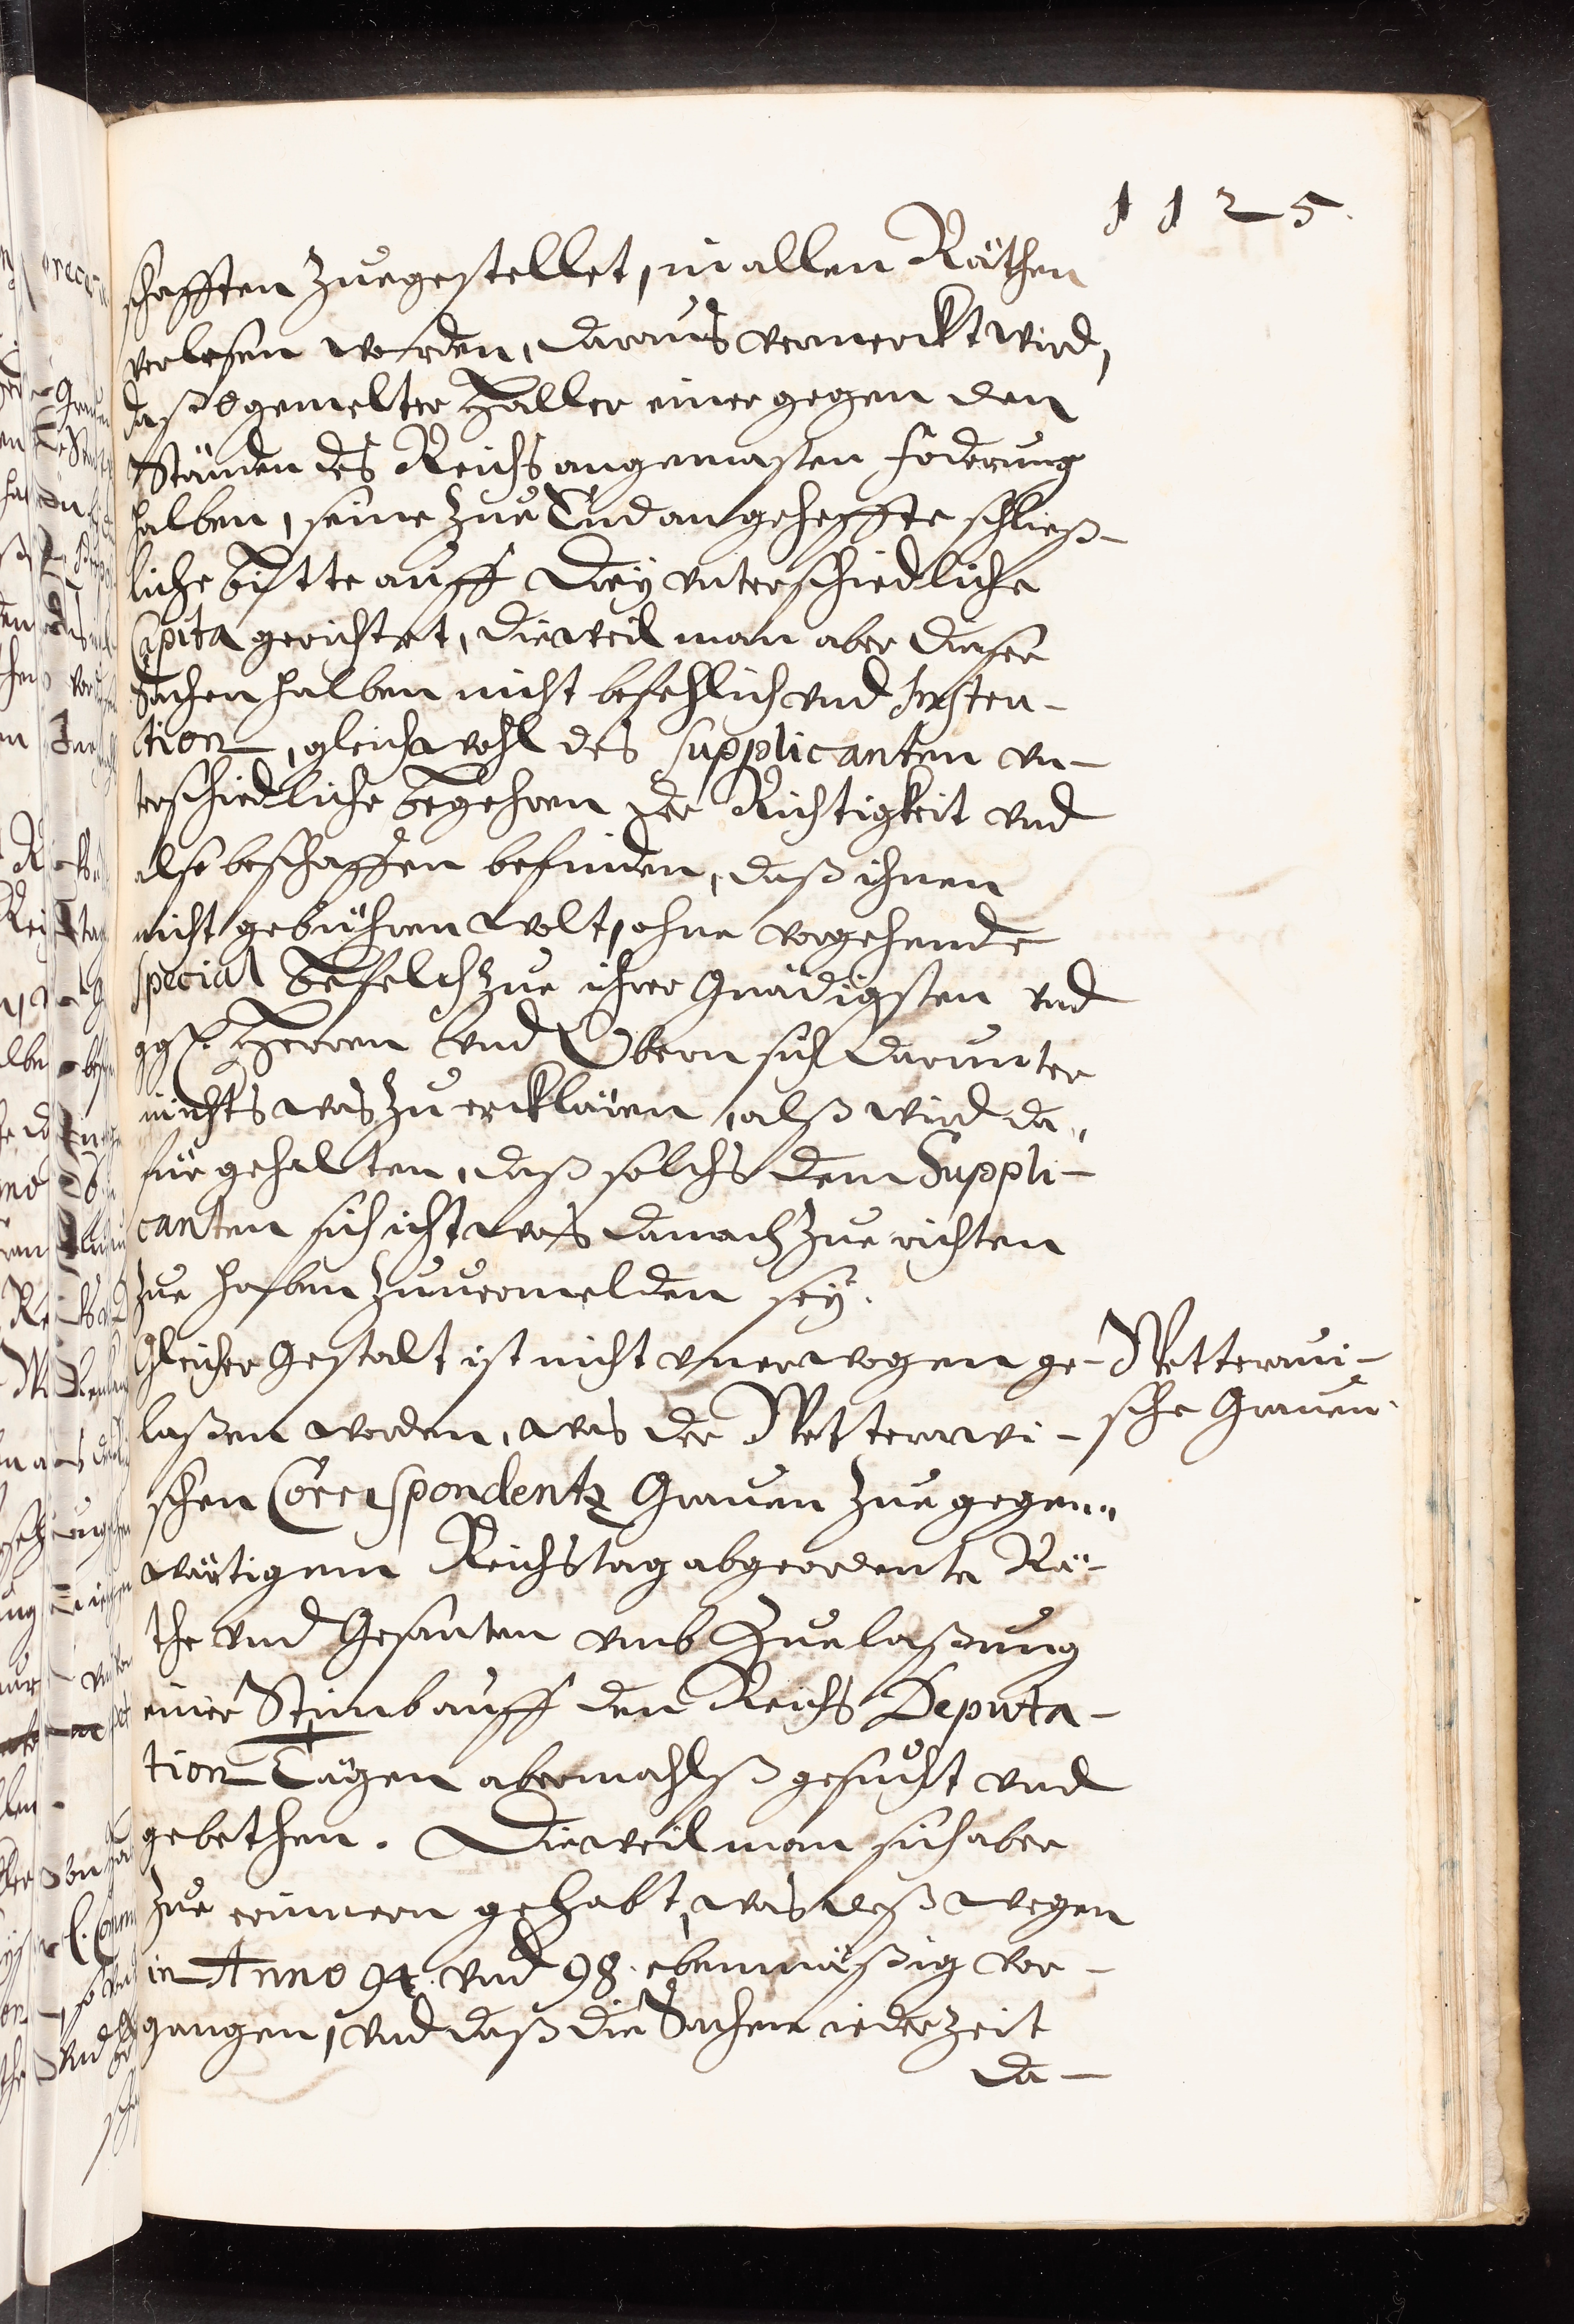 1125.
schafften zuegestellet, in allen Räthen
verlesen worden, daraus vermerckt wird,
daß egemelter Haller einer gegen den
Ständen des Reichs angemasten foderung
halben, seine zue End angeheffte schließ-
liche bitte auff drey unterschiedliche
Capita gerichtet, dieweil man aber dieser
Sachen halben nicht befehlich vnd Insten-
ction, gleichwohl des supplicanten vn-
terschiedliche begehren der Richtigkeit vnd
also beschaffen befinden, daß ihnen
nicht gebühren wolt, ohne vorgehende
special befelch zue ihrer Gnädigsten vnd
ggst. Herren vnd Obern sich darunter
nichts was zu ercklären, alß wird da„
für gehalten, daß solchs dem Suppli-
canten sich ichtwas darnach zue richten
zue haben zuuermelden seÿ.
Gleicher Gestalt ist nicht vnerwogen ge-
laßen worden, was der Wetterawi-
schen Correspondentz Grauen zue gegen„
wärtigem Reichstag abgeordente Rä-
the vnd Gesanten vmb Zuelaßung
einer Stimb auff den Reichs Deputa-
tion Tägen abermahlß gesucht vnd
gebethen. Dieweil man sich aber
zue erinnern gehabt, was deßwegen
in Anno 94. vnd 98. ebenmäßig vor-
gangen, vnd daß die Sachen iederzeit
da-
Wetteraui-
sche Grauen.